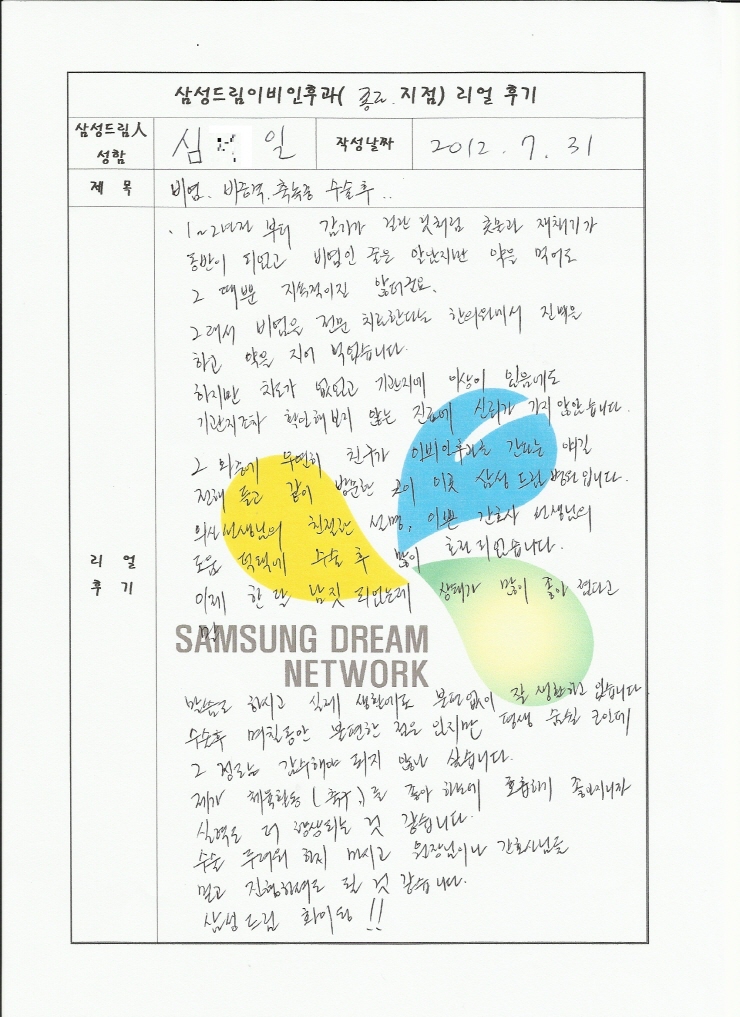 삼성드림이비인후과( 종로 지점) 리얼 후기
삼성드림人
성함
심 일
작성날짜
2012. 7. 31
제 목
비염, 비중격, 축농증 수술후 ..
· 1~2년전 부터 감기가 걸린 것처럼 콧물과 재채기가
동반이 되었고 비염인 줄은 알았지만 약을 먹어도
그 때뿐 지속적이질 않더군요.
그래서 비염을 전문 치료한다는 한의원에서 진맥을
하고 약을 지어 먹었습니다.
하지만 차도가 없었고 기관지에 이상이 있음에도
기관지조차 확인해보지 않는 진료에 신뢰가 가지 않았습니다.
그 와중에 우연히 친구가 이비인후과를 간다는 얘길
전해 듣고 같이 방문한 곳이 이곳 삼성 드림 병원입니다.
의사선생님의 친절한 설명, 이쁜 간호사 선생님의
도움 덕택에 수술 후 많이 호전되었습니다.
이제 한 달 남짓 되었는데 상태가 많이 좋아 졌다고
SAMSUNG DREAM
NETWORK
리 얼
후 기
말씀도 하시고 실제 생활에도 불편없이 잘 생활하고 있습니다
수술후 며칠동안 불편한 점은 있지만 평생 숨쉴 코인데
그 정도는 감수해야 되지 않나 싶습니다.
제가 체육활동(축구)을 좋아 하는데 호흡하기 좋아지니까
실력도 더 향상되는 것 같습니다.
수술 두려워 하지 마시고 원장님이나 간호사님들
믿고 진행하셔도 될 것 같습니다.
삼성드림 화이팅 !!